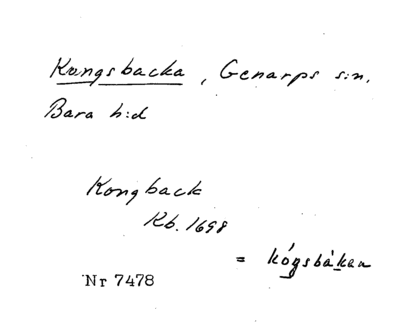 Kungsbacka, Genarps s:n,
Bara h:d
Kongback
Kb. 1698
= kógsbàkan
Nr 7478